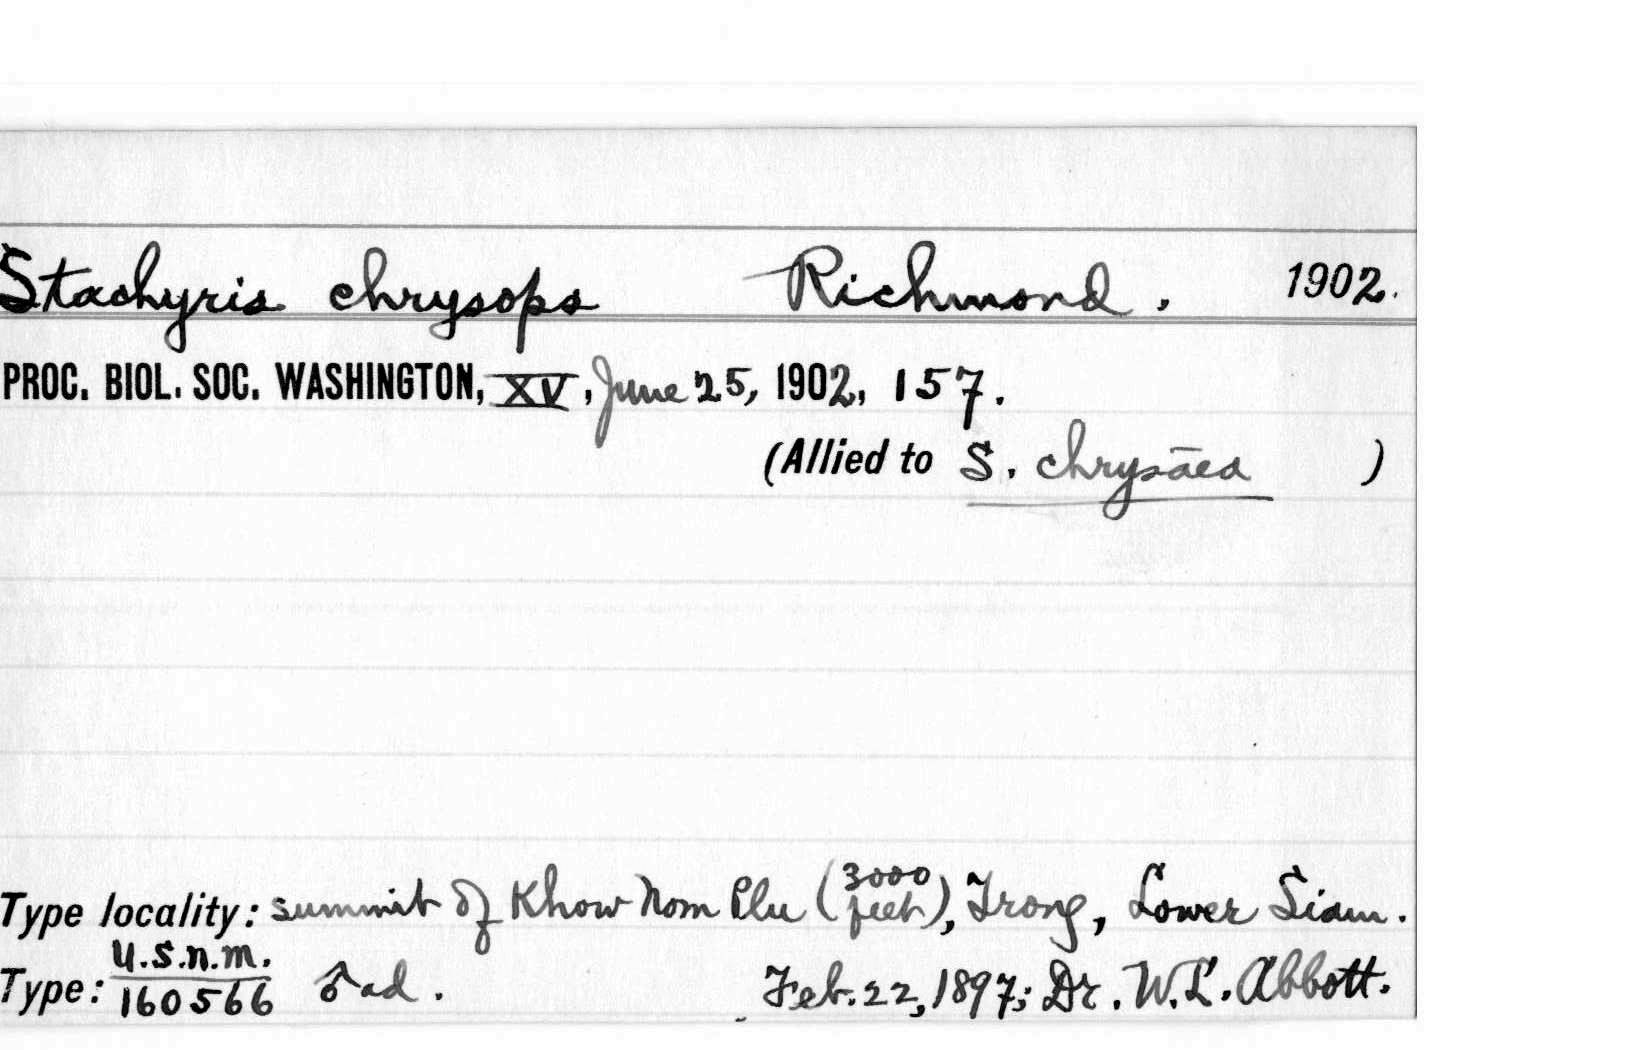 Stachyris chrysops Richmond. 1902.
PROC. BIOL. SOC. WASHINGTON, XV, June 25, 1902, 157.
(Allied to S. chrysäea )
Type locality: summit of Khow Nom Plu (3000 feet), Trong, Lower Siam.
U.S.N.M.
Type: 160566 ♂ ad. Feb. 22, 1897; Dr. W. L. Abbott.